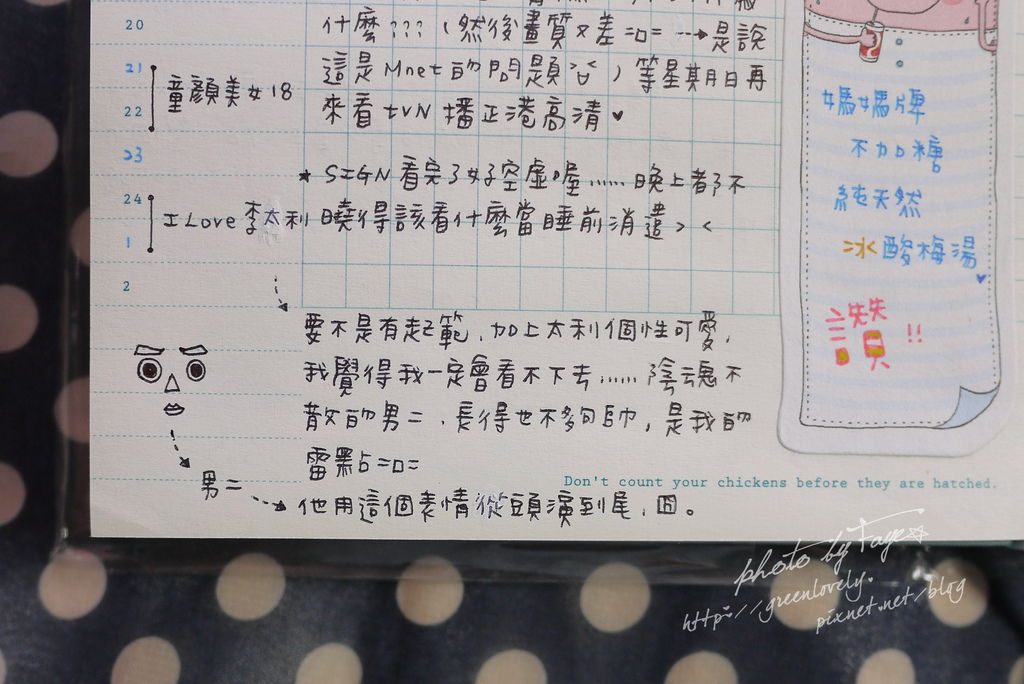 20
什麼???(然後畫質又差=口= --→是說
21
這是Mnet的問題ˋˊ)等星期日再
童顏美女18
22
來看tVN播正港高清♥
23
* SIGN看完了好空虛喔……晚上都不
24
I Love 李太利
曉得該看什麼當睡前消遣> <
1
2
要不是有起範、加上太利個性可愛,
我覺得我一定會看不下去……陰魂不
散的男二、長得也不夠帥,是我的
雷點=口=
男二
他用這個表情從頭演到尾、囧。
媽媽牌
不加糖
純天然
冰酸梅湯
讚!!
Don't count your chickens before they are hatched.
photo by Faye
http://greenlovely.
pixnet.net/blog